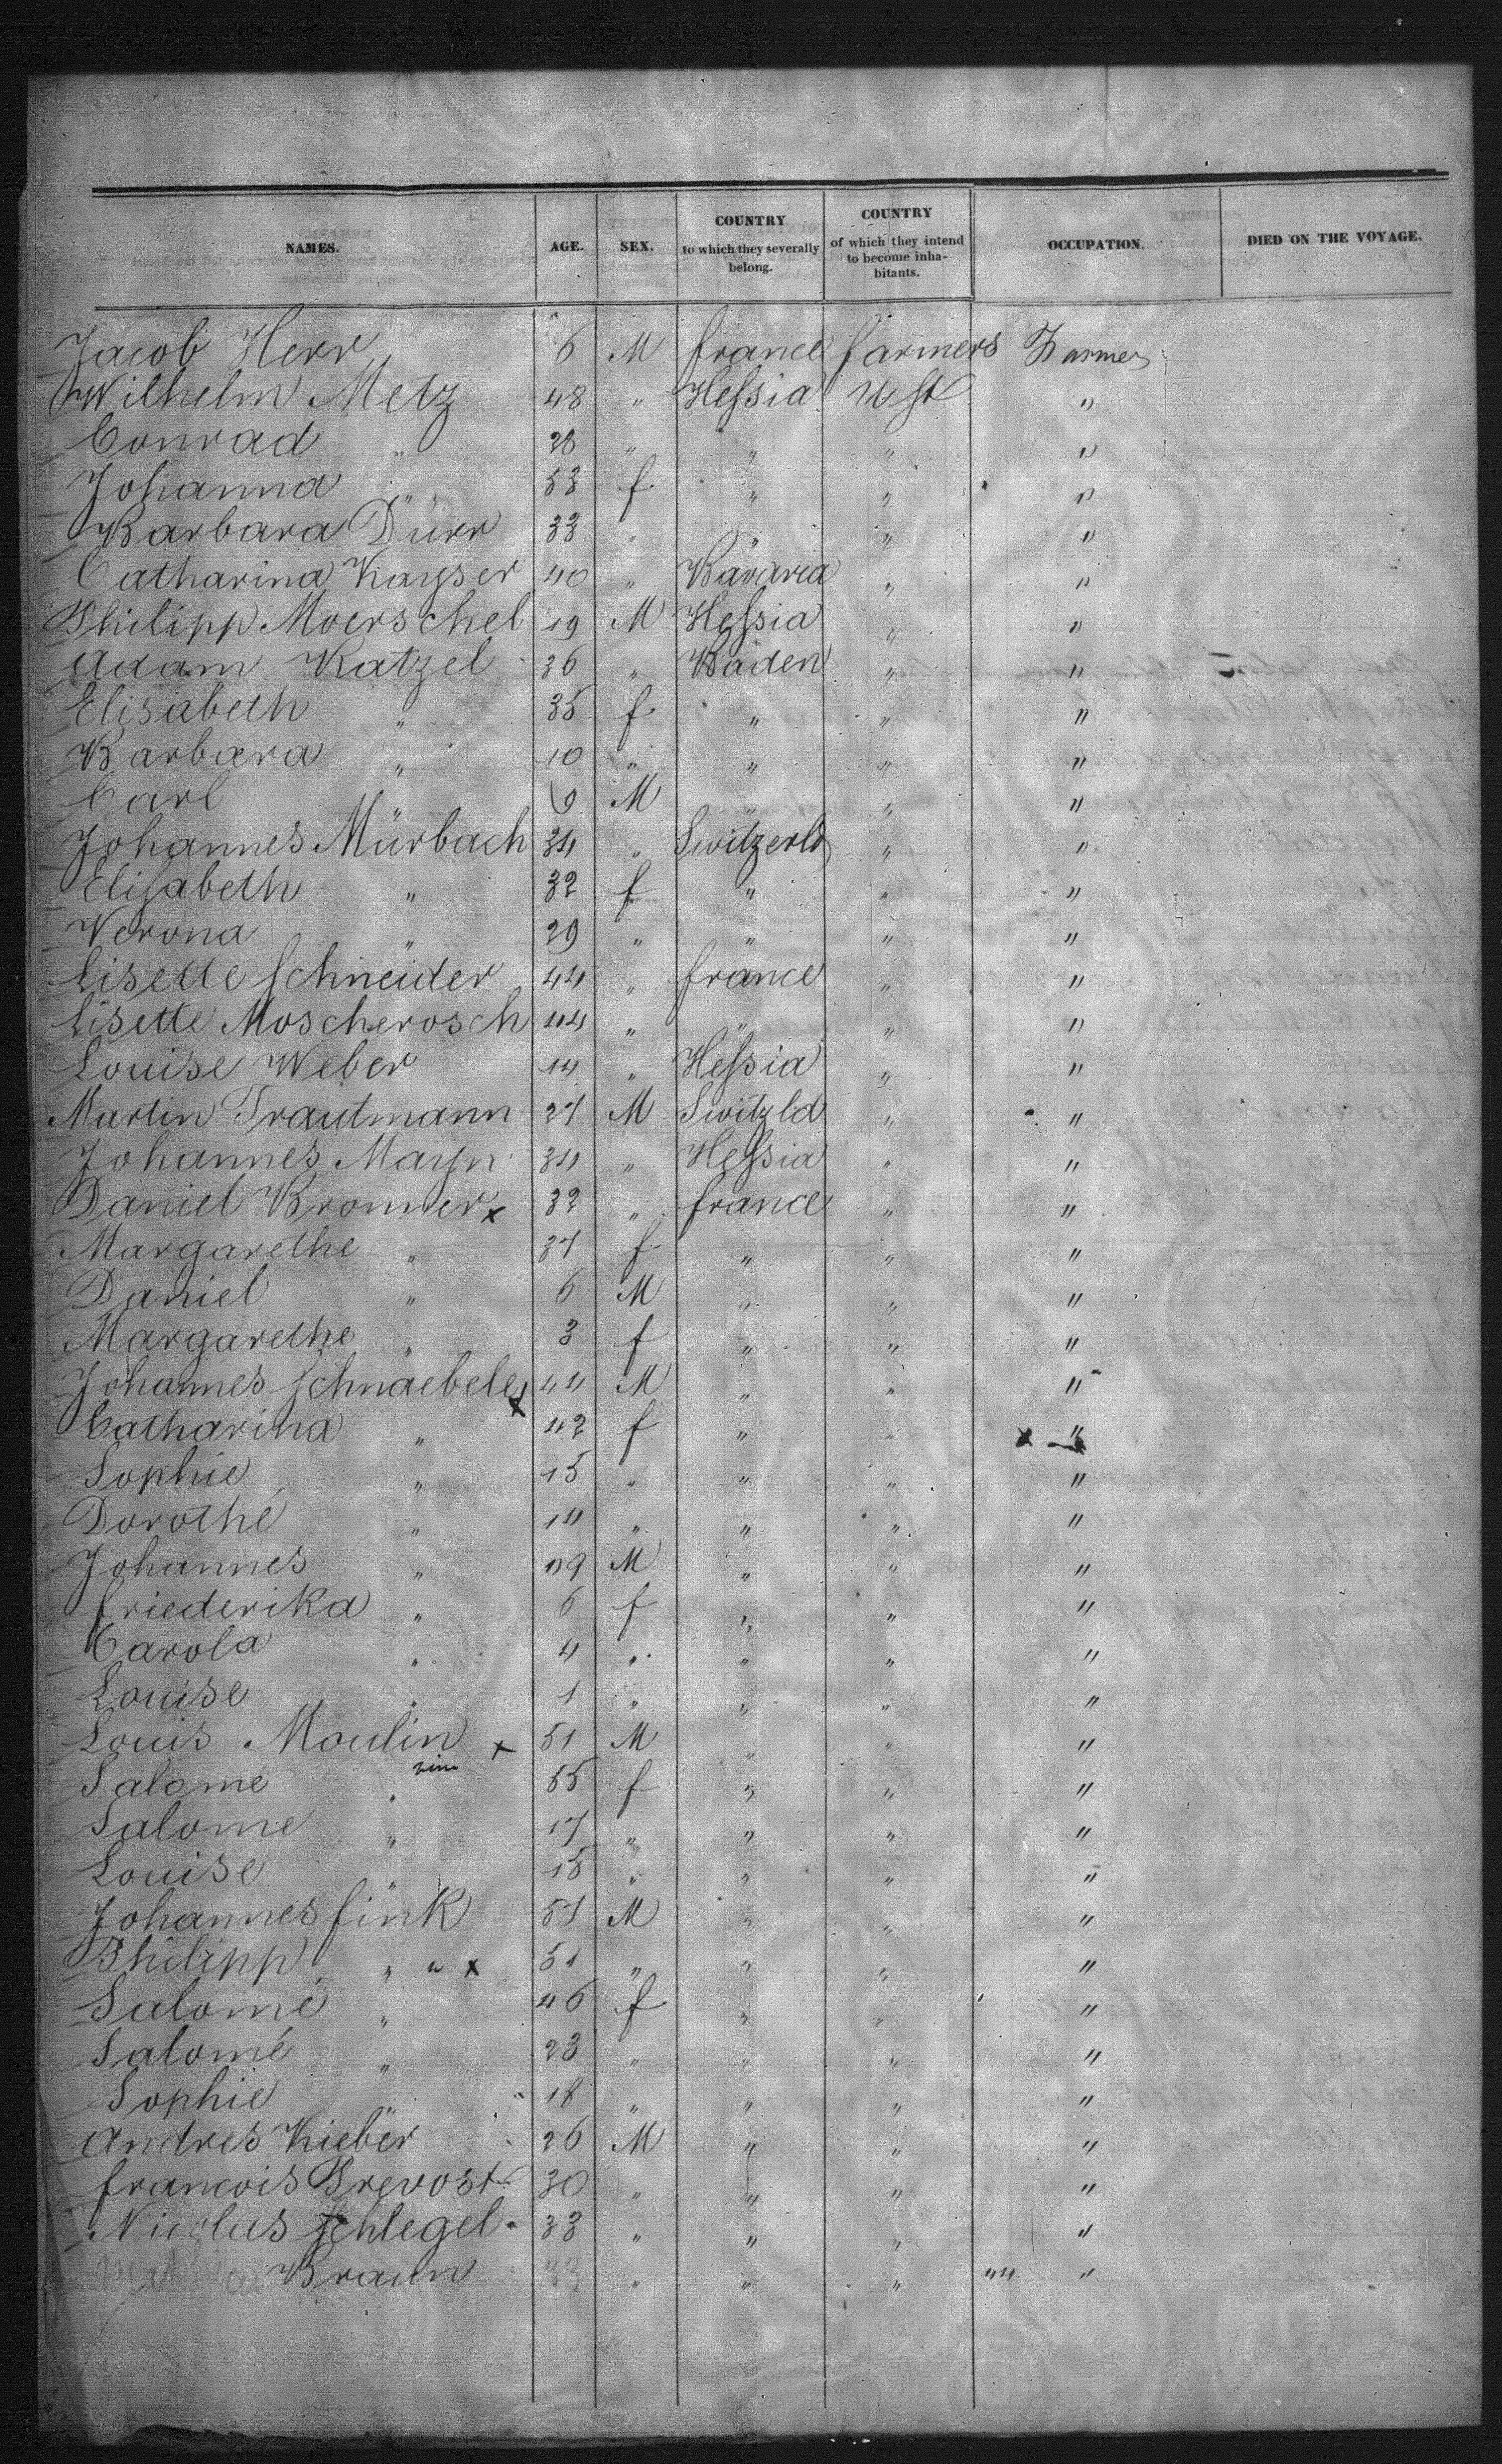 NAMES. AGE. SEX. COUNTRY to which they severally belong. COUNTRY of which they intend to become inhabitants. OCCUPATION. DIED ON THE VOYAGE.
Jacob Herr 6 M france farmers Farmer
Wilhelm Metz 48 " Hessia U St "
Conrad " 28 " " " "
Johanna " 53 f " " "
Barbara Dürr 33 " " " "
Catharina Kayser 40 " Bavaria " "
Philipp Moerschel 19 M Hessia " "
Adam Katzel 36 " Baden " "
Elisabeth " 35 f " " "
Barbara " 10 " " " "
Carl 9 M " " "
Johannes Mürbach 34 " Switzerld " "
Elisabeth " 32 f " " "
Verona " 29 " " " "
Lisette Schneider 44 " france " "
Lisette Moscherosch 44 " " " "
Louise Weber 14 " Hessia " "
Martin Trautmann 27 M Switzld " "
Johannes Mayn 34 " Hessia " "
Daniel Bronner x 32 " france " "
Margarethe " 37 f " " "
Daniel " 6 M " " "
Margarethe " 3 f " " "
Johannes Schnaebele x 44 M " " "
Catharina " 42 f " " x "
Sophie " 15 " " " "
Dorothé " 14 " " " "
Johannes " 9 M " " "
friederika " 6 f " " "
Carola " 4 " " " "
Louise " 1 " " " "
Louis Moulin x 51 M " " "
Salome " 55 f " " "
Salome " 17 " " " "
Louise " 15 " " " "
Johannes fink 57 M " " "
Philipp " " x 51 " " " "
Salomé " 46 f " " "
Salomé " 23 " " " "
Sophie " 18 " " " "
Andres Kieber 26 M " " "
francois Prevost 30 " " " "
Nicolus Schlegel 33 " " " "
Braun 33 " " " " "